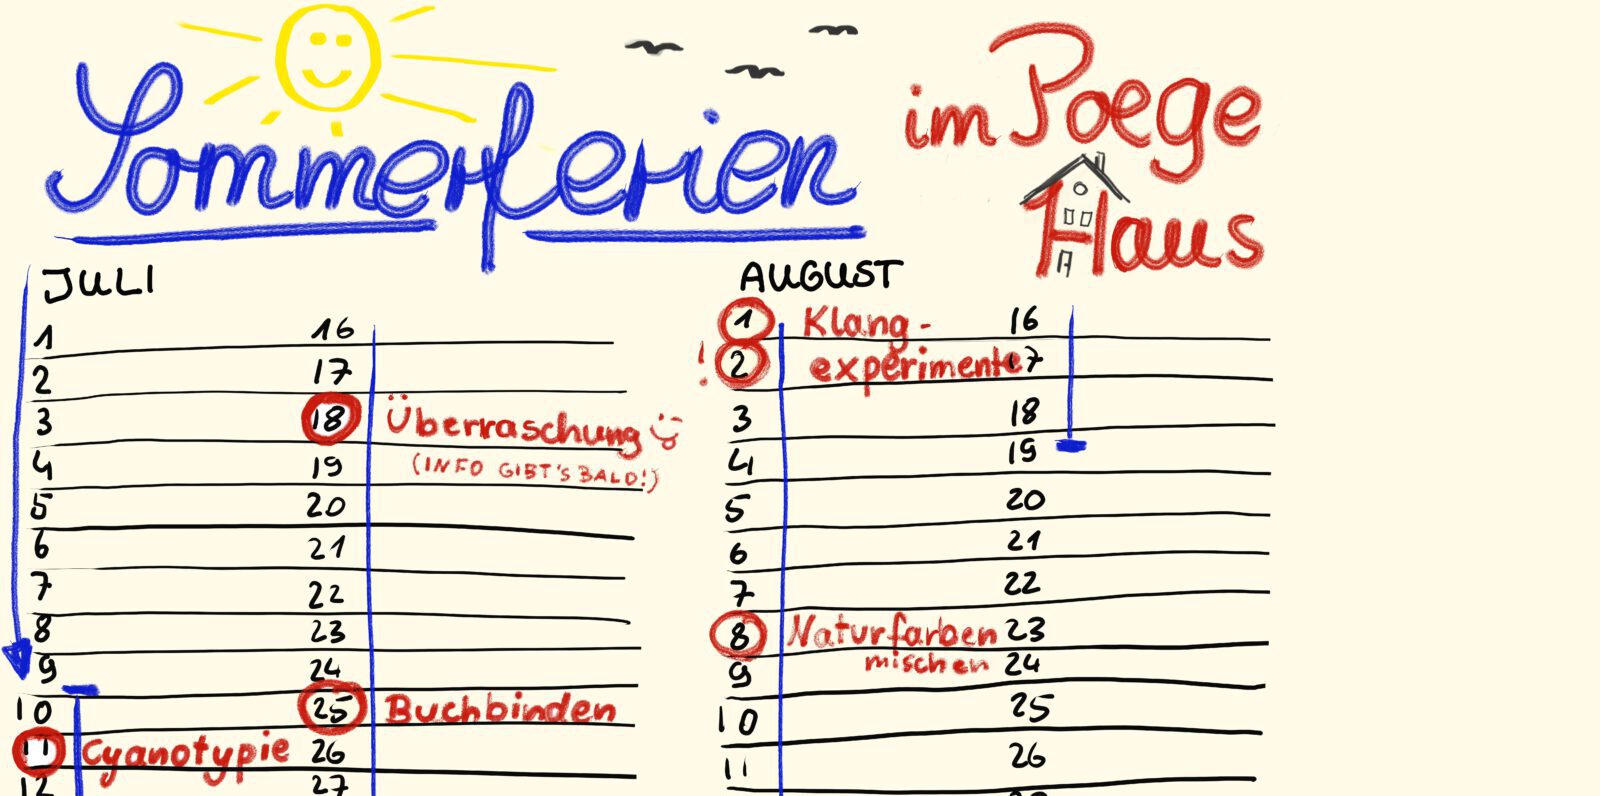 Sommerferien
im Poege
Haus
JULI
1
2
3
4
5
6
7
8
9
10
11 Cyanotypie
12
16
17
18 Überraschung
(INFO GIBT'S BALD!)
19
20
21
22
23
24
25 Buchbinden
26
27
AUGUST
1 Klang-
! 2 experimente
3
4
5
6
7
8 Naturfarben
mischen
9
10
11
16
17
18
19
20
21
22
23
24
25
26